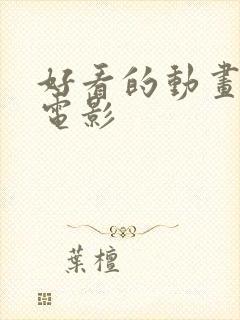 好看的動畫
電影
葉檀